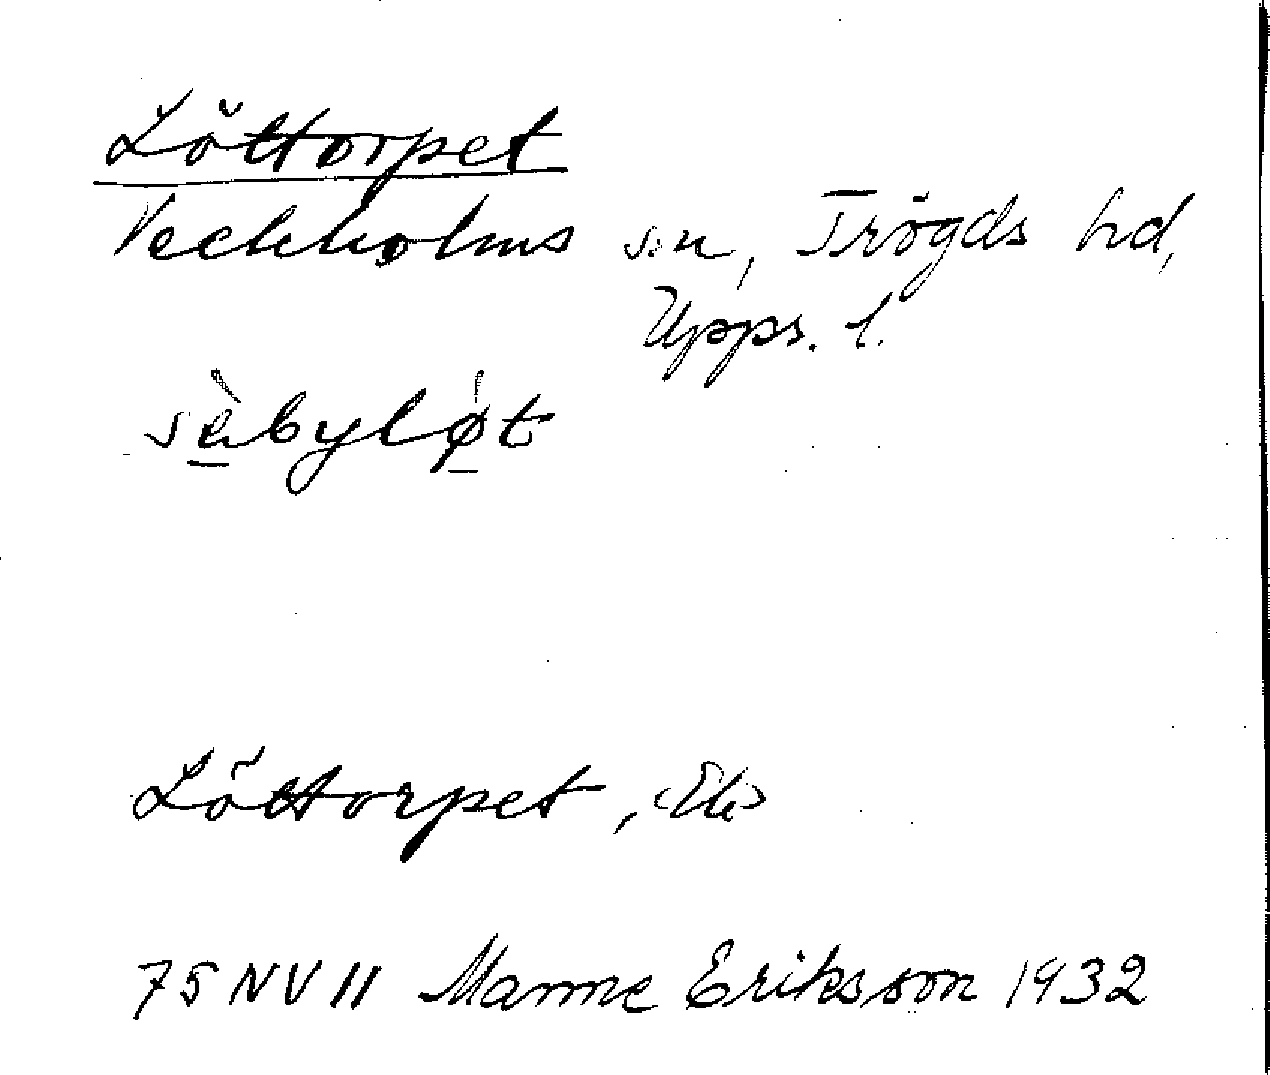 Löttorpet
Veckholms sn, Trögds hd,
Upps. l.
sè̱bylǿ̱t
Löttorpet,
75 NV 11 Manne Eriksson 1932